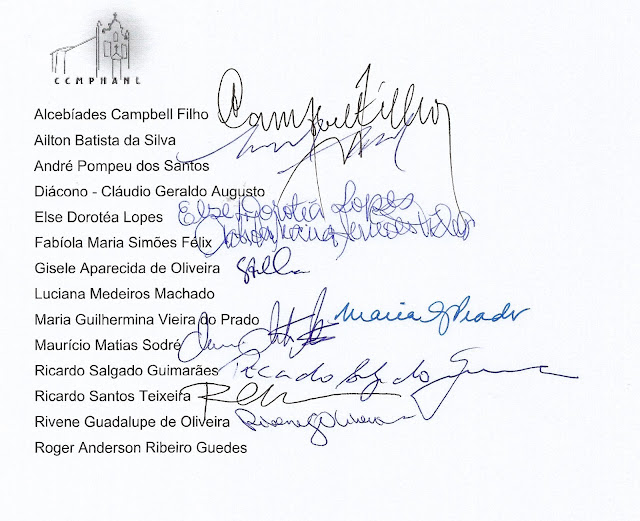 CCMPHANL
Alcebíades Campbell Filho Campbell Filho
Ailton Batista da Silva
André Pompeu dos Santos
Diácono - Cláudio Geraldo Augusto
Else Dorotéa Lopes Else Dorotéa Lopes
Fabíola Maria Simões Félix
Gisele Aparecida de Oliveira
Luciana Medeiros Machado
Maria Guilhermina Vieira do Prado Maria G Prado
Maurício Matias Sodré
Ricardo Salgado Guimarães Ricardo Salgado
Ricardo Santos Teixeira
Rivene Guadalupe de Oliveira
Roger Anderson Ribeiro Guedes